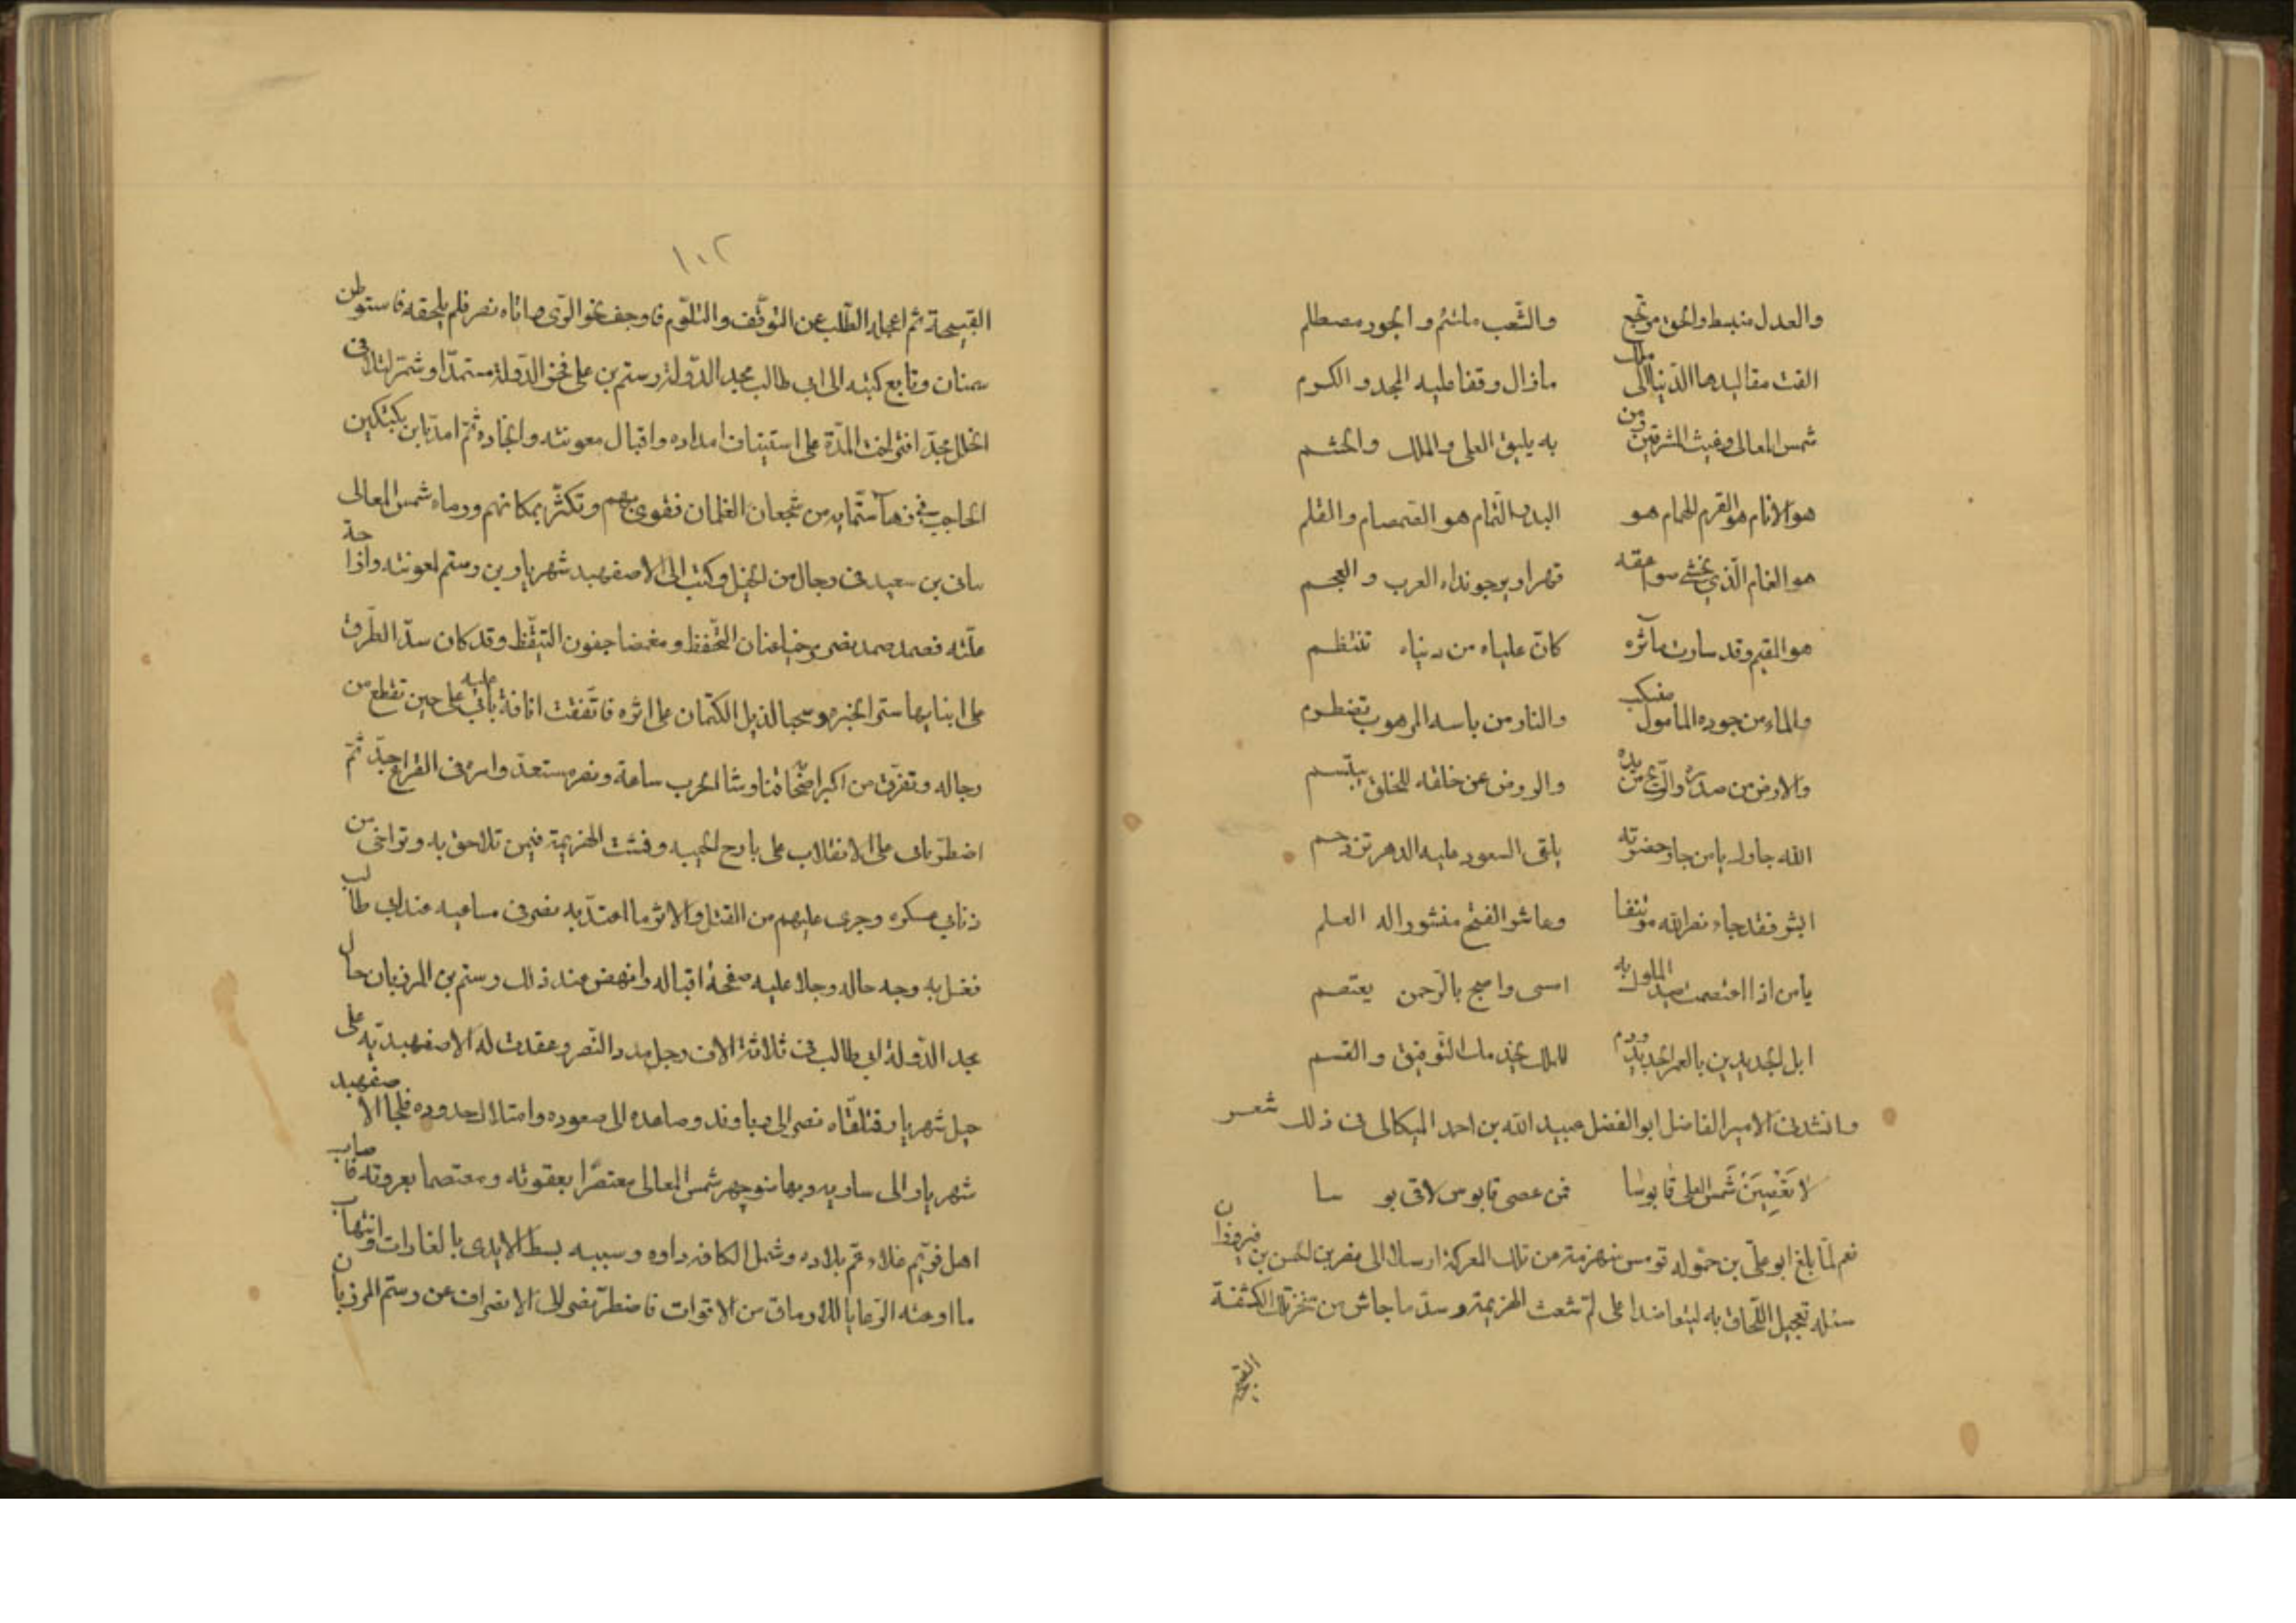 والعدل منبسط والحق مرتجع والشعب ملتئم والجور مصطلم
القت مقاليدها الدنيا الى ملك مازال وقفا عليه المجد والكرم
شمس المعالى وغيث المشرقين ومن به يليق العلى والملك والحشم
هو الانام هو القرم الهمام هو البدر التمام هو الصمصام والقلم
هو الغمام الذي يخشى صواعقه قهرا ويرجو نداه العرب والعجم
هو القيم وقد سارت مآثره كان علياه من دنياه تنتظم
والماء من جوده المامول منسكب والنار من باسه المرهوب تضطرم
والارض من صدره والريح من يده والروض عن خلقه للخلق يبتسم
الله جارك يامن جار حضرته يلقى السعود عليه الدهر تزدحم
ابشر فقد جاء نصر الله موتنفا وعاشر الفتح منشورا له العلم
يامن اذا اعتصمت صيد الملوك به امسى واصبح بالرحمن يعتصم
ابل الجديدين بالعمر الجديد ودم للملك يخدمك التوفيق والقسم
وانشدنى الامير الفاضل ابو الفضل عبيد الله بن احمد الميكالى فى ذلك شعر
لا تَعْصِيَنْ شَمْسَ العلى قابوسا فمن عصى قابوس لاقى بوسا
نعم لما بلغ ابو على بن حموله قومس منهزمة من تلك المعركة ارسل الى نصر بن الحسن بن فيروزان
سئله تعجيل اللحاق به ليتعاضدا على لم شعث الهزيمة وسد ما جاش من تخرتك الكثفة
القبيحة
١٠٢
القبيحة ثم اعجله الطلب عن التوقف والتلوم فاوجف نحو الرى واتاه نصر فلم يلحقه فاستوطن
سمنان وتابع كتبه الى ابى طالب مجد الدولة رستم بن على فخر الدولة مستمدا وشمر لتلافى
الخلل مجدا فتراخت المدة على استيناف امداده واقبال معونته وانجاده ثم امد بابن بكتكين
الحاجب فى زهاء ستمايه من شجعان الغلمان فقوى بهم وتكثر بمكانهم ورماه شمس المعالى
بباتى بن سعيد فى رجال من الجيل وكتب الى الاصفهبد شهريار بن رستم لمعونته وازاحة
علته فصمد صمد نصر مرخيا عنان التحفظ ومغمضا جفون التيقظ وقد كان سد الطرق
على ابنايها ستر الخبره وسحبا لذيل الكتمان على اثره فاتفقت اناخة باتى عليه على حين تقطع من
رجاله وتفرق من اكبر اصحابه فتناوشا الحرب ساعة ونصر مستعد وامره فى القراع جد ثم
اضطر باتى على الانقلاب على بارح الخيبه وفشت الهزيمة فيمن تلاحق به وتراخى من
ذنابى عسكره وجرى عليهم من القتل والاثر ما اعتد به نصر فى مساعيه عند ابى طالب
فغسل به وجه حاله وجلا عليه صفحة اقباله وانهض عند ذلك رستم بن المرزبان خال
مجد الدولة ابى طالب فى ثلاثة الاف رجل مدد النصر وعقدت له الاصفهبدية على
جبل شهريار فتلقاه نصر الى دباوند وصاعده الى صعوده وامتلاك حدوده فلجا الاصفهبد
شهريار الى ساريه وبها منوچهر شمس المعالى معتصرا بعقوته ومعتصما بعروته فاصاب
اهل فريم غلاء عم بلاده وشمل الكافه داوه وسببه بسط الايدى بالغارات وانتهاب
ما اوعته الرعايا للارماق من الاقوات فاضطر نصر الى الانصراف عن رستم المرزبان